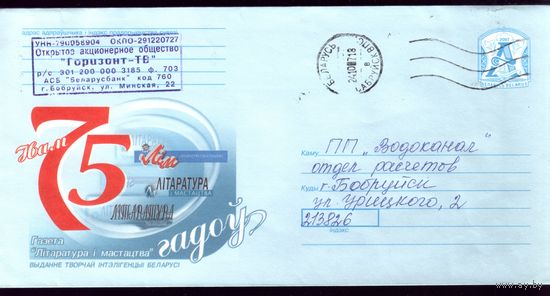 УНН-790058904 ОКПО-291220727
Открытое акционерное общество
"Горизонт-ТВ"
р/с 301 200 000 3185 ф. 703
АСБ "Беларусбанк" код 760
г.Бобруйск ул. Минская, 22
БЕЛАРУСЬ
2410 07 18
БАБРУЙСК ВПС
в
А
Нам
75
ЛіМ
ЛІТАРАТУРА
І МАСТАЦТВА
гадоў
Газета
"Літаратура і мастацтва"
ВЫДАННЕ ТВОРЧАЙ ІНТЭЛІГЕНЦЫІ БЕЛАРУСІ
Каму ПП „Водоканал"
отдел расчетов
Куды г. Бобруйск
ул. Урицкого, 2
213826
Індэкс
www.ay.by